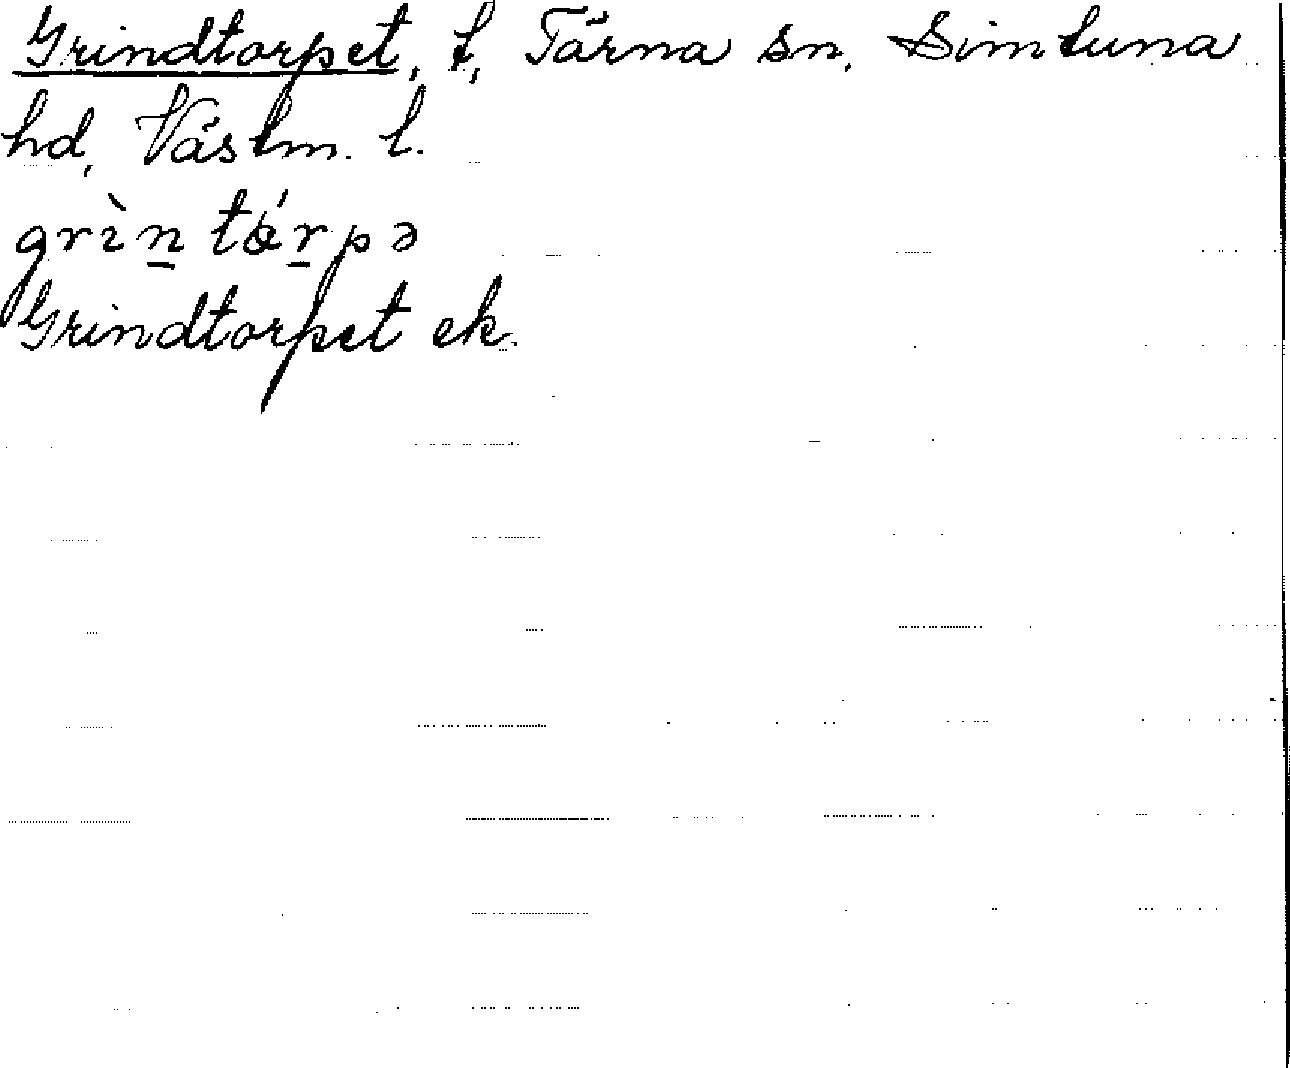 Grindtorpet, t, Tärna sn, Simtuna
hd, Västm. l.
grìn̲ tǿr̲pə
Grindtorpet ek.